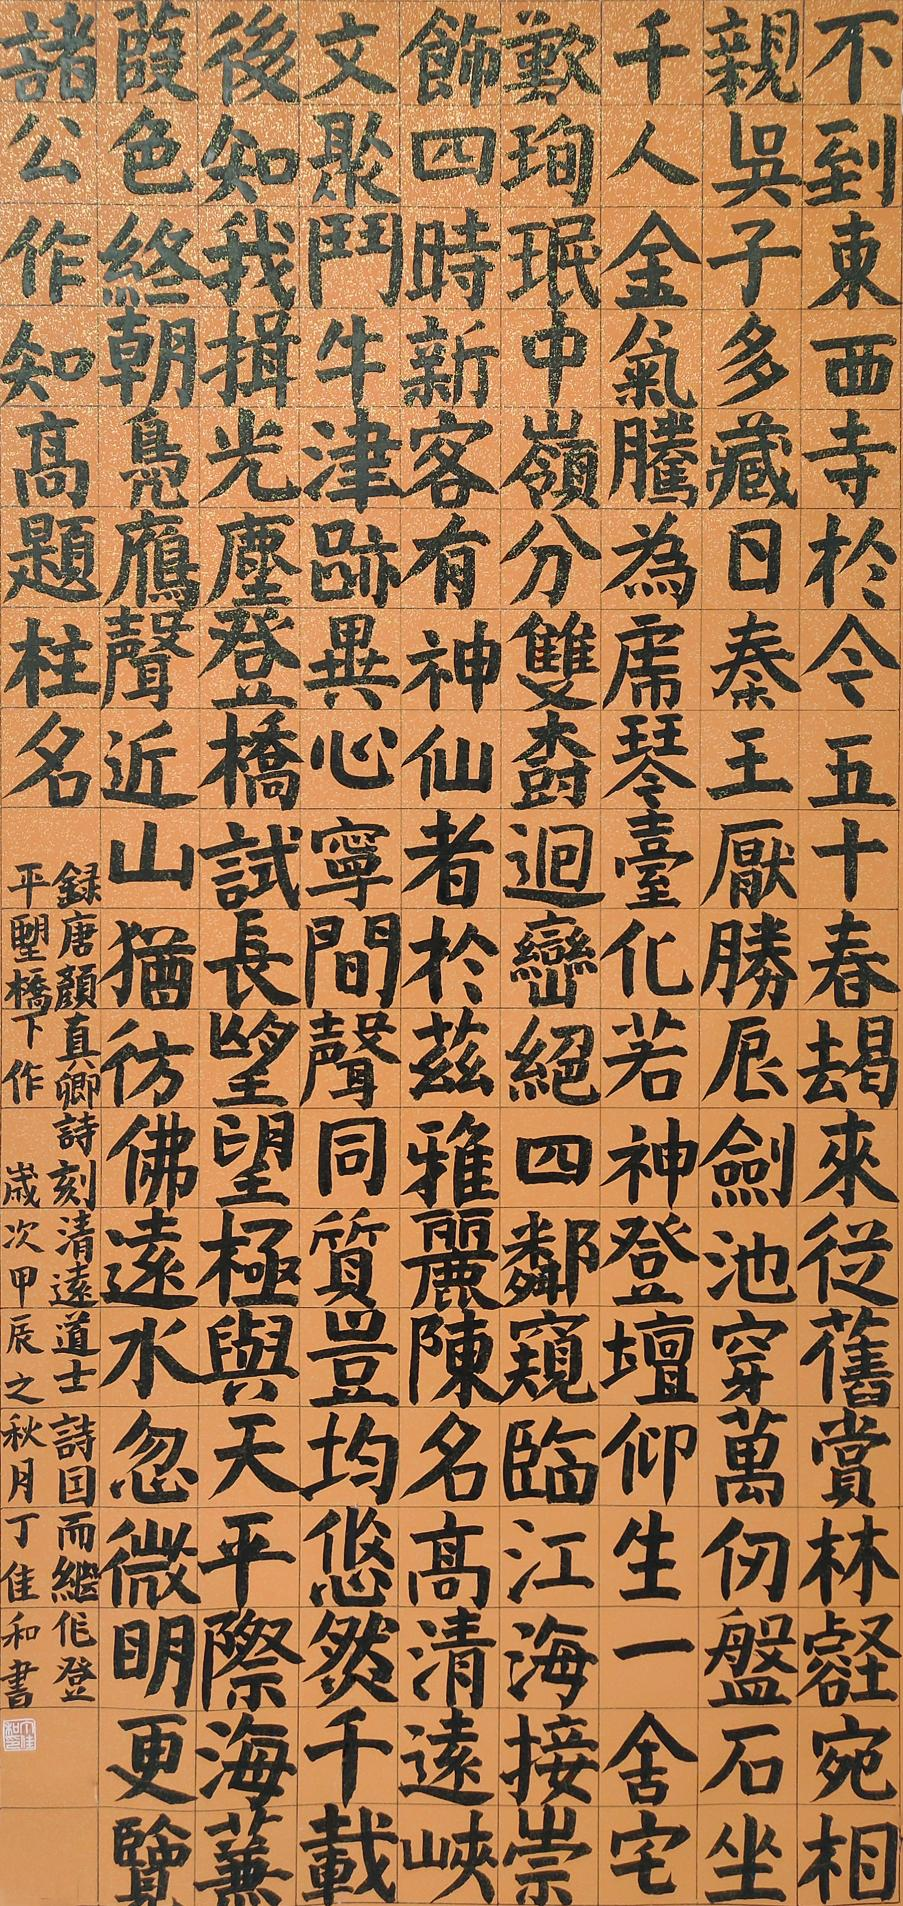 不到東西寺於今五十春朅來從舊賞林壑宛相
親吳子多藏日秦王厭勝辰劍池穿萬仞盤石坐
千人金氣騰為虎琴臺化若神登壇仰生一舍宅
歎珣珉中嶺分雙樹迴巒絕四鄰窺臨江海接崇
飾四時新客有神仙者於茲雅麗陳名高清遠峽
文聚鬥牛津跡異心寧間聲同質豈均悠然千載
後知我揖光塵登橋試長望望極與天平際海蒹
葭色終朝鳧鴈聲近山猶彷彿遠水忽微明更覽
諸公作知高題柱名
録唐顏真卿詩刻清遠道士詩因而繼作登
平望橋下作 歲次甲辰之秋月丁佳和書